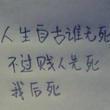 人生自古谁无死
不过贱人先死
我后死